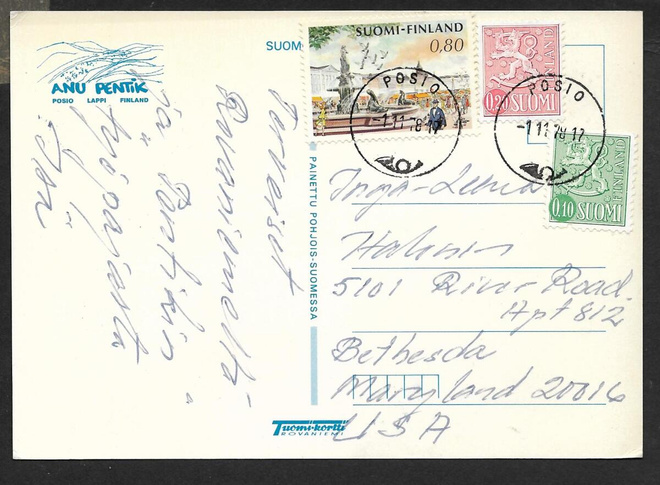 ANU PENTIK
POSIO LAPPI FINLAND
SUOM
SUOMI-FINLAND
0,80
0,20 SUOMI
FINLAND
0,10 SUOMI
POSIO
-1.11.78-17
POSIO
-1.11.78-17
Terveiset
Rovaniemeltä
ja Pentikin
työpajasta
PAINETTU POHJOIS-SUOMESSA
Inga-Leena
5101 River Road
Apt 812
Bethesda
Maryland 20016
USA
Tuomi-kortti
ROVANIEMI